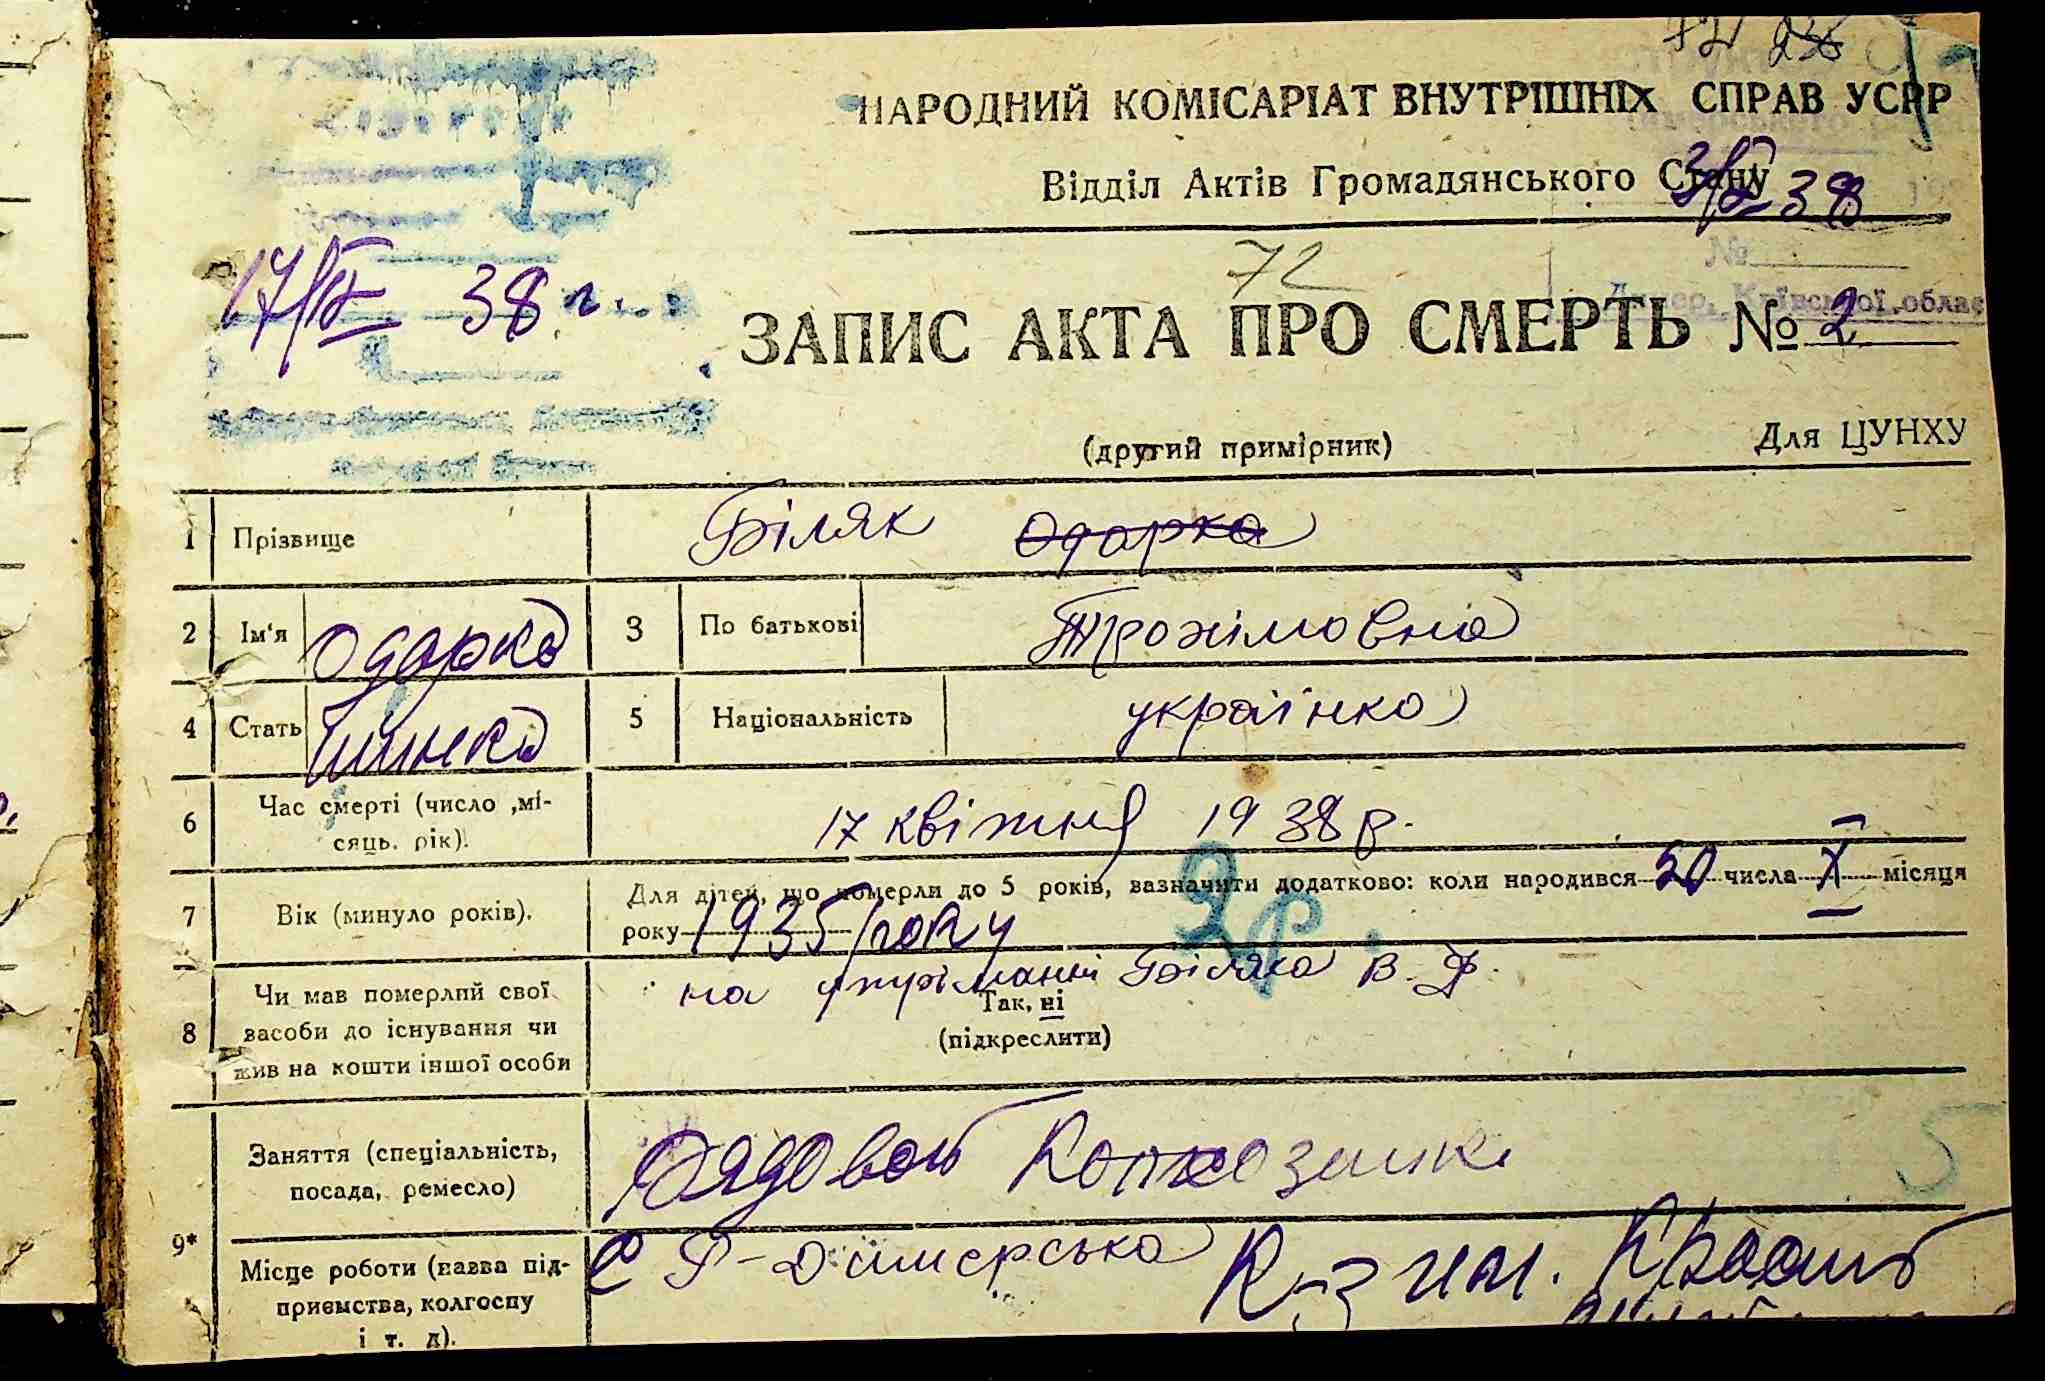 72
НАРОДНИЙ КОМІСАРІАТ ВНУТРІШНІХ СПРАВ УСРР
Відділ Актів Громадянського Стану
3/V 38
17/IV 38 г.
72
Димер, Київської, облас
ЗАПИС АКТА ПРО СМЕРТЬ № 2
(другий примірник)
Для ЦУНХУ
1 Прізвище Біляк Одарка
2 Ім'я Одарка 3 По батькові Трохімовна
4 Стать жінка 5 Національність українка
6 Час смерті (число ,мі-
сяць. рік). 17 квітня 1938 р.
7 Вік (минуло років). Для дітей, що померли до 5 років, вазначити додатково: коли народився 20 числа X місяця
року 1935 року 2 р.
8 Чи мав померлий свої васоби до існування чи жив на кошти іншої особи
на утріманні Біляка В. Ф.
Так, ні
(підкреслити)
9* Заняття (спеціальність,
посада, ремесло) Рядовой Колхозник
Місце роботи (назва під-
приємства, колгоспу
і т. д). с Р-Димерська К-з им. Красный